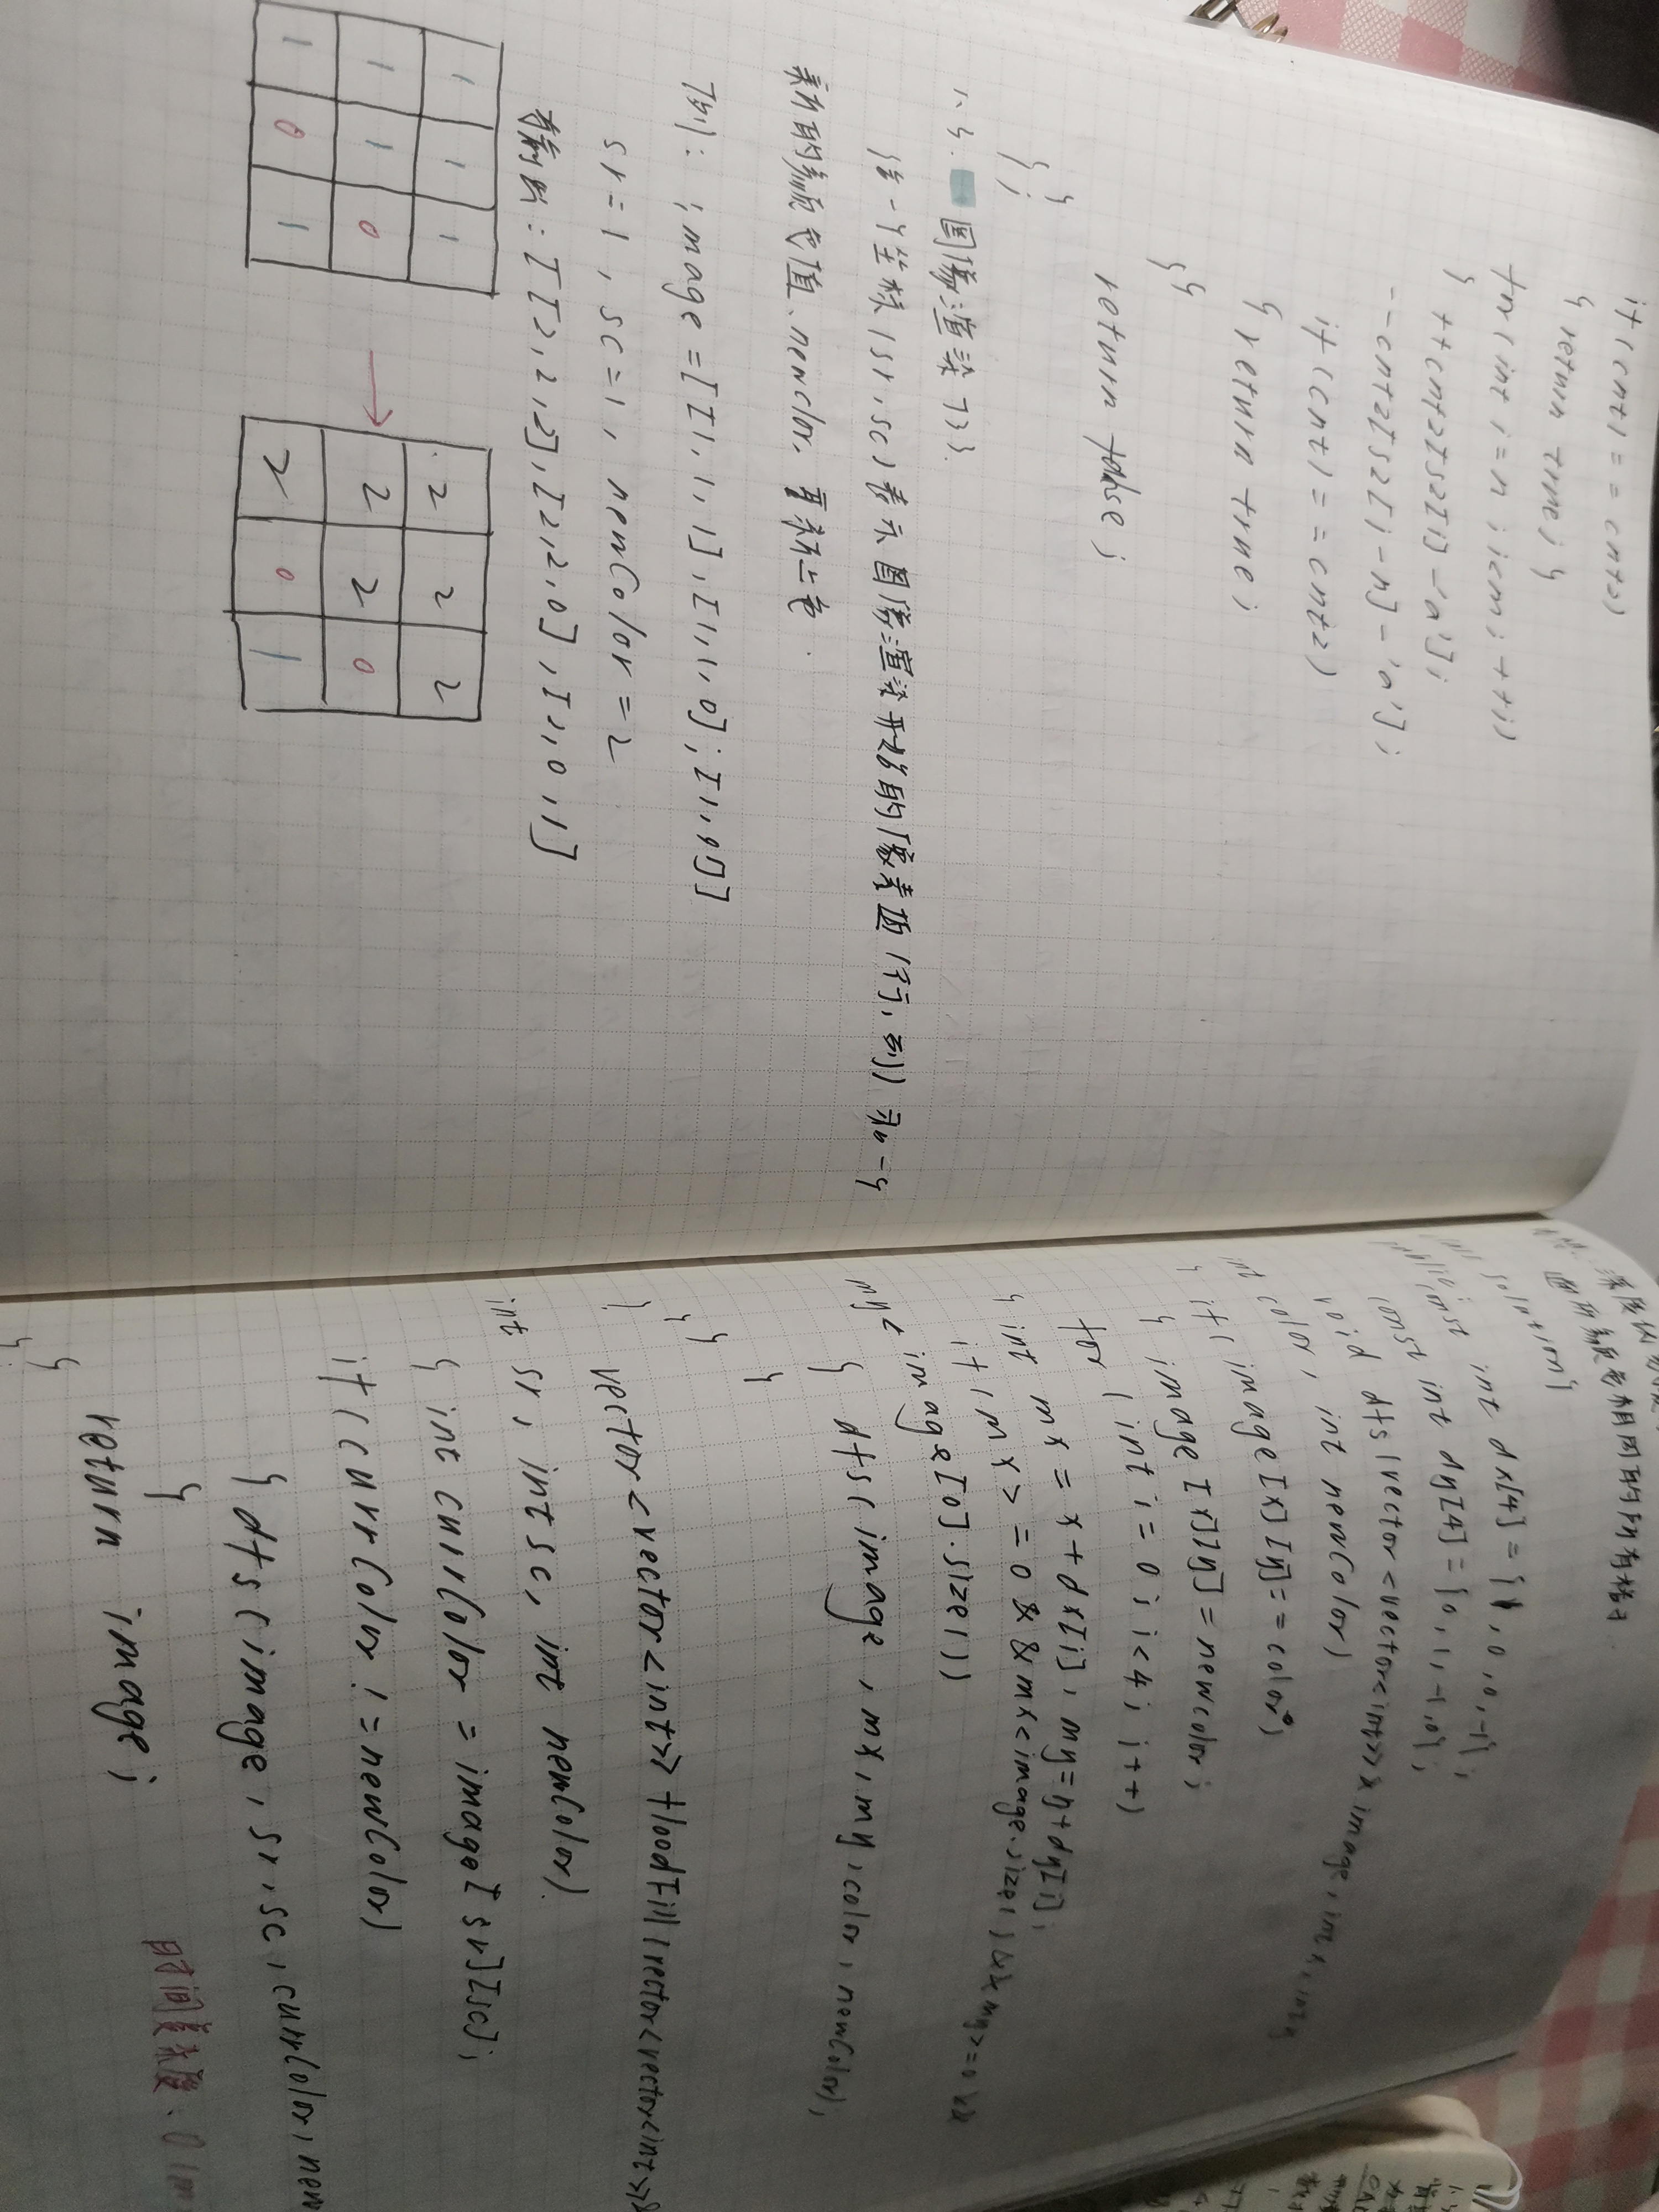 if (cnt1 == cnt2)
{ return true; }
for (int i = n; i < m; ++i)
{
++cnt2[s2[i] - 'a'];
--cnt2[s2[i-n] - 'a'];
if (cnt1 == cnt2)
{ return true;
}}
return false;
}
};
1、4. 图像渲染 733.
给一个坐标 (sr, sc) 表示图像渲染开始的像素值 (行, 列) 和一个
新的颜色值 newclor, 重新上色.
例: image = [[1, 1, 1], [1, 1, 0], [1, 0, 1]]
sr = 1, sc = 1, newColor = 2
[[2, 2, 2], [2, 2, 0], [1, 0, 1]]
1 1 1
1 1 0
1 0 1
2 2 2
2 2 0
2 0 1
颜色相同的所有格子
int dx[4] = {1, 0, 0, -1};
const int dy[4] = {0, 1, -1, 0};
void dfs(vector<vector<int>>& image, int x, int y
color, int newColor)
{ if (image[x][y] == color)
{ image[x][y] = newcolor;
for (int i = 0; i < 4; i++)
{ int mx = x + dx[i], my = y + dy[i];
if (mx >= 0 && mx < image.size() && my >= 0 &&
my < image[0].size())
{ dfs(image, mx, my, color, newColor);
}
}
}
}
vector<vector<int>> floodFill(vector<vector<int>>&
int sr, int sc, int newColor)
{ int currColor = image[sr][sc];
if (currColor != newColor)
{ dfs(image, sr, sc, currColor, new
}
return image;
}
};
时间复杂度、O(n